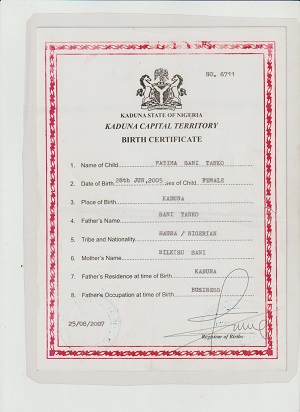 NO. 6711
KADUNA STATE OF NIGERIA
KADUNA CAPITAL TERRITORY
BIRTH CERTIFICATE
1. Name of Child FATIMA SANI TANKO
2. Date of Birth 28th JUN, 2005 Sex of Child FEMALE
3. Place of Birth KADUNA
4. Father's Name SANI TANKO
5. Tribe and Nationality HAUSA / NIGERIAN
6. Mother's Name BILKISU SANI
7. Father's Residence at time of Birth KADUNA
8. Father's Occupation at time of Birth BUSINESS
25/08/2007
Registrar of Births